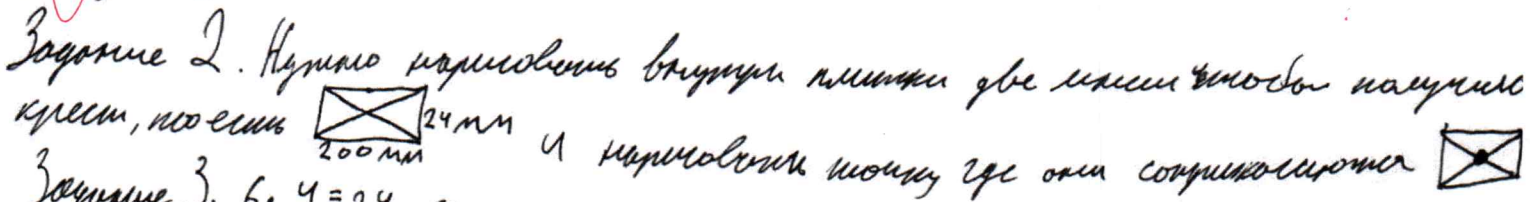 Задание 2. Нужно нарисовать внутри плитки две линии чтобы получить
крест, то есть 24 мм
200 мм и нарисовать точку где они соприкосаются
Задание 3. 6 · 4 = 24